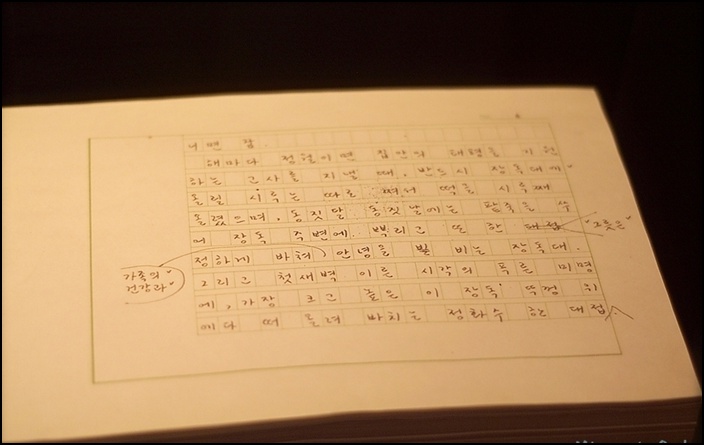 니면 장.
해마다 정월이면 집안의 태평을 기원
하는 고사를 지낼 때, 반드시 장독대에
올릴 시루는 따로 쪄서 떡을 시루째
올렸으며, 동짓달 동짓날에는 팥죽을 쑤
어 장독 주변에 뿌리고 또 한 대접 "그릇은"
정하게 바쳐 안녕을 빌 비는 장독대.
가족의
건강과
그리고 첫새벽 이른 시각의 푸른 미명
에, 가장 크고 높은 이 장독 뚜껑 위
에다 떠 올려 바치는 정화수 한 대접